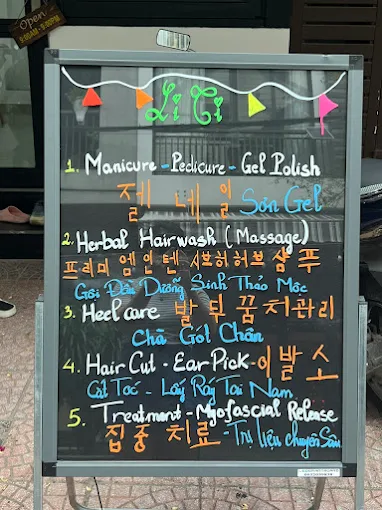 Open
9:00AM - 9:00PM
Li Ti
1. Manicure - Pedicure - Gel Polish
젤 네일 Sơn Gel
2. Herbal Hairwash (Massage)
프리미엄 인텐시브 허브 샴푸
Gội Đầu Dưỡng Sinh Thảo Mộc
3. Heel care 발 뒤꿈치관리
Chà Gót Chân
4. Hair Cut - Ear Pick - 이발소
Cắt Tóc - Lấy Ráy Tai Nam
5. Treatment - Myofascial Release
집중 치료 - Trị liệu chuyên Sâu